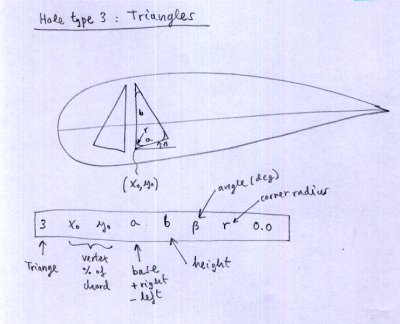 Hole type 3 : Triangles
b
r
a
β
(x₀, y₀)
angle (deg)
corner radius
3 x₀ y₀ a b β r 0.0
Triange
vertex
% of
chord
base
+ right
- left
height